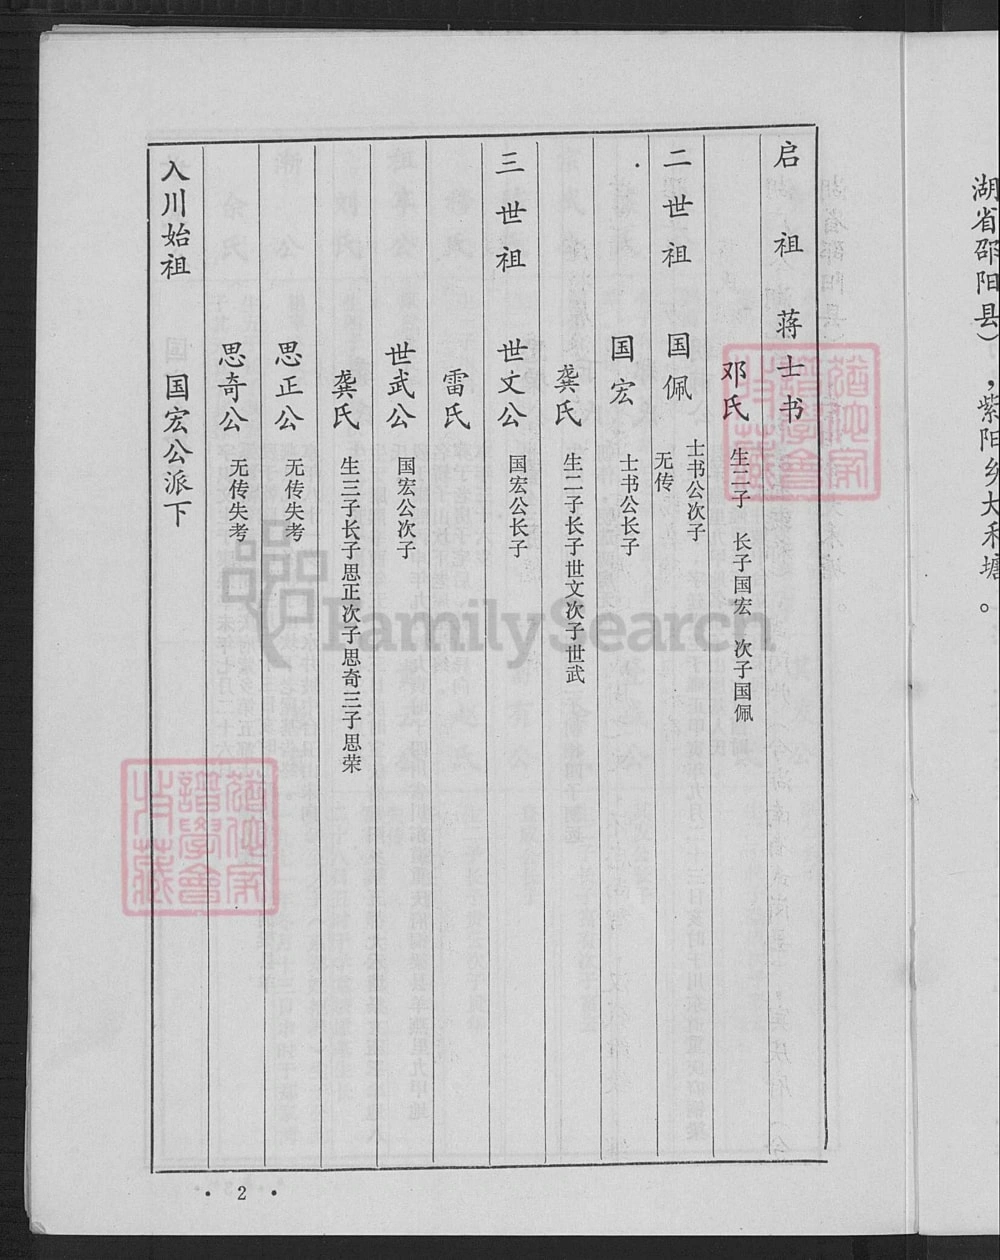 湖省邵阳县），紫阳乡大禾塘。
启祖 蒋士书
邓氏 生二子 长子国宏 次子国佩
二世祖 国佩 士书公次子
无传
国宏 士书公长子
龚氏 生二子长子世文次子世武
三世祖 世文公 国宏公长子
雷氏
世武公 国宏公次子
龚氏 生三子长子思正次子思奇三子思荣
思正公 无传失考
思奇公 无传失考
入川始祖 国宏公派下
·2·
FamilySearch